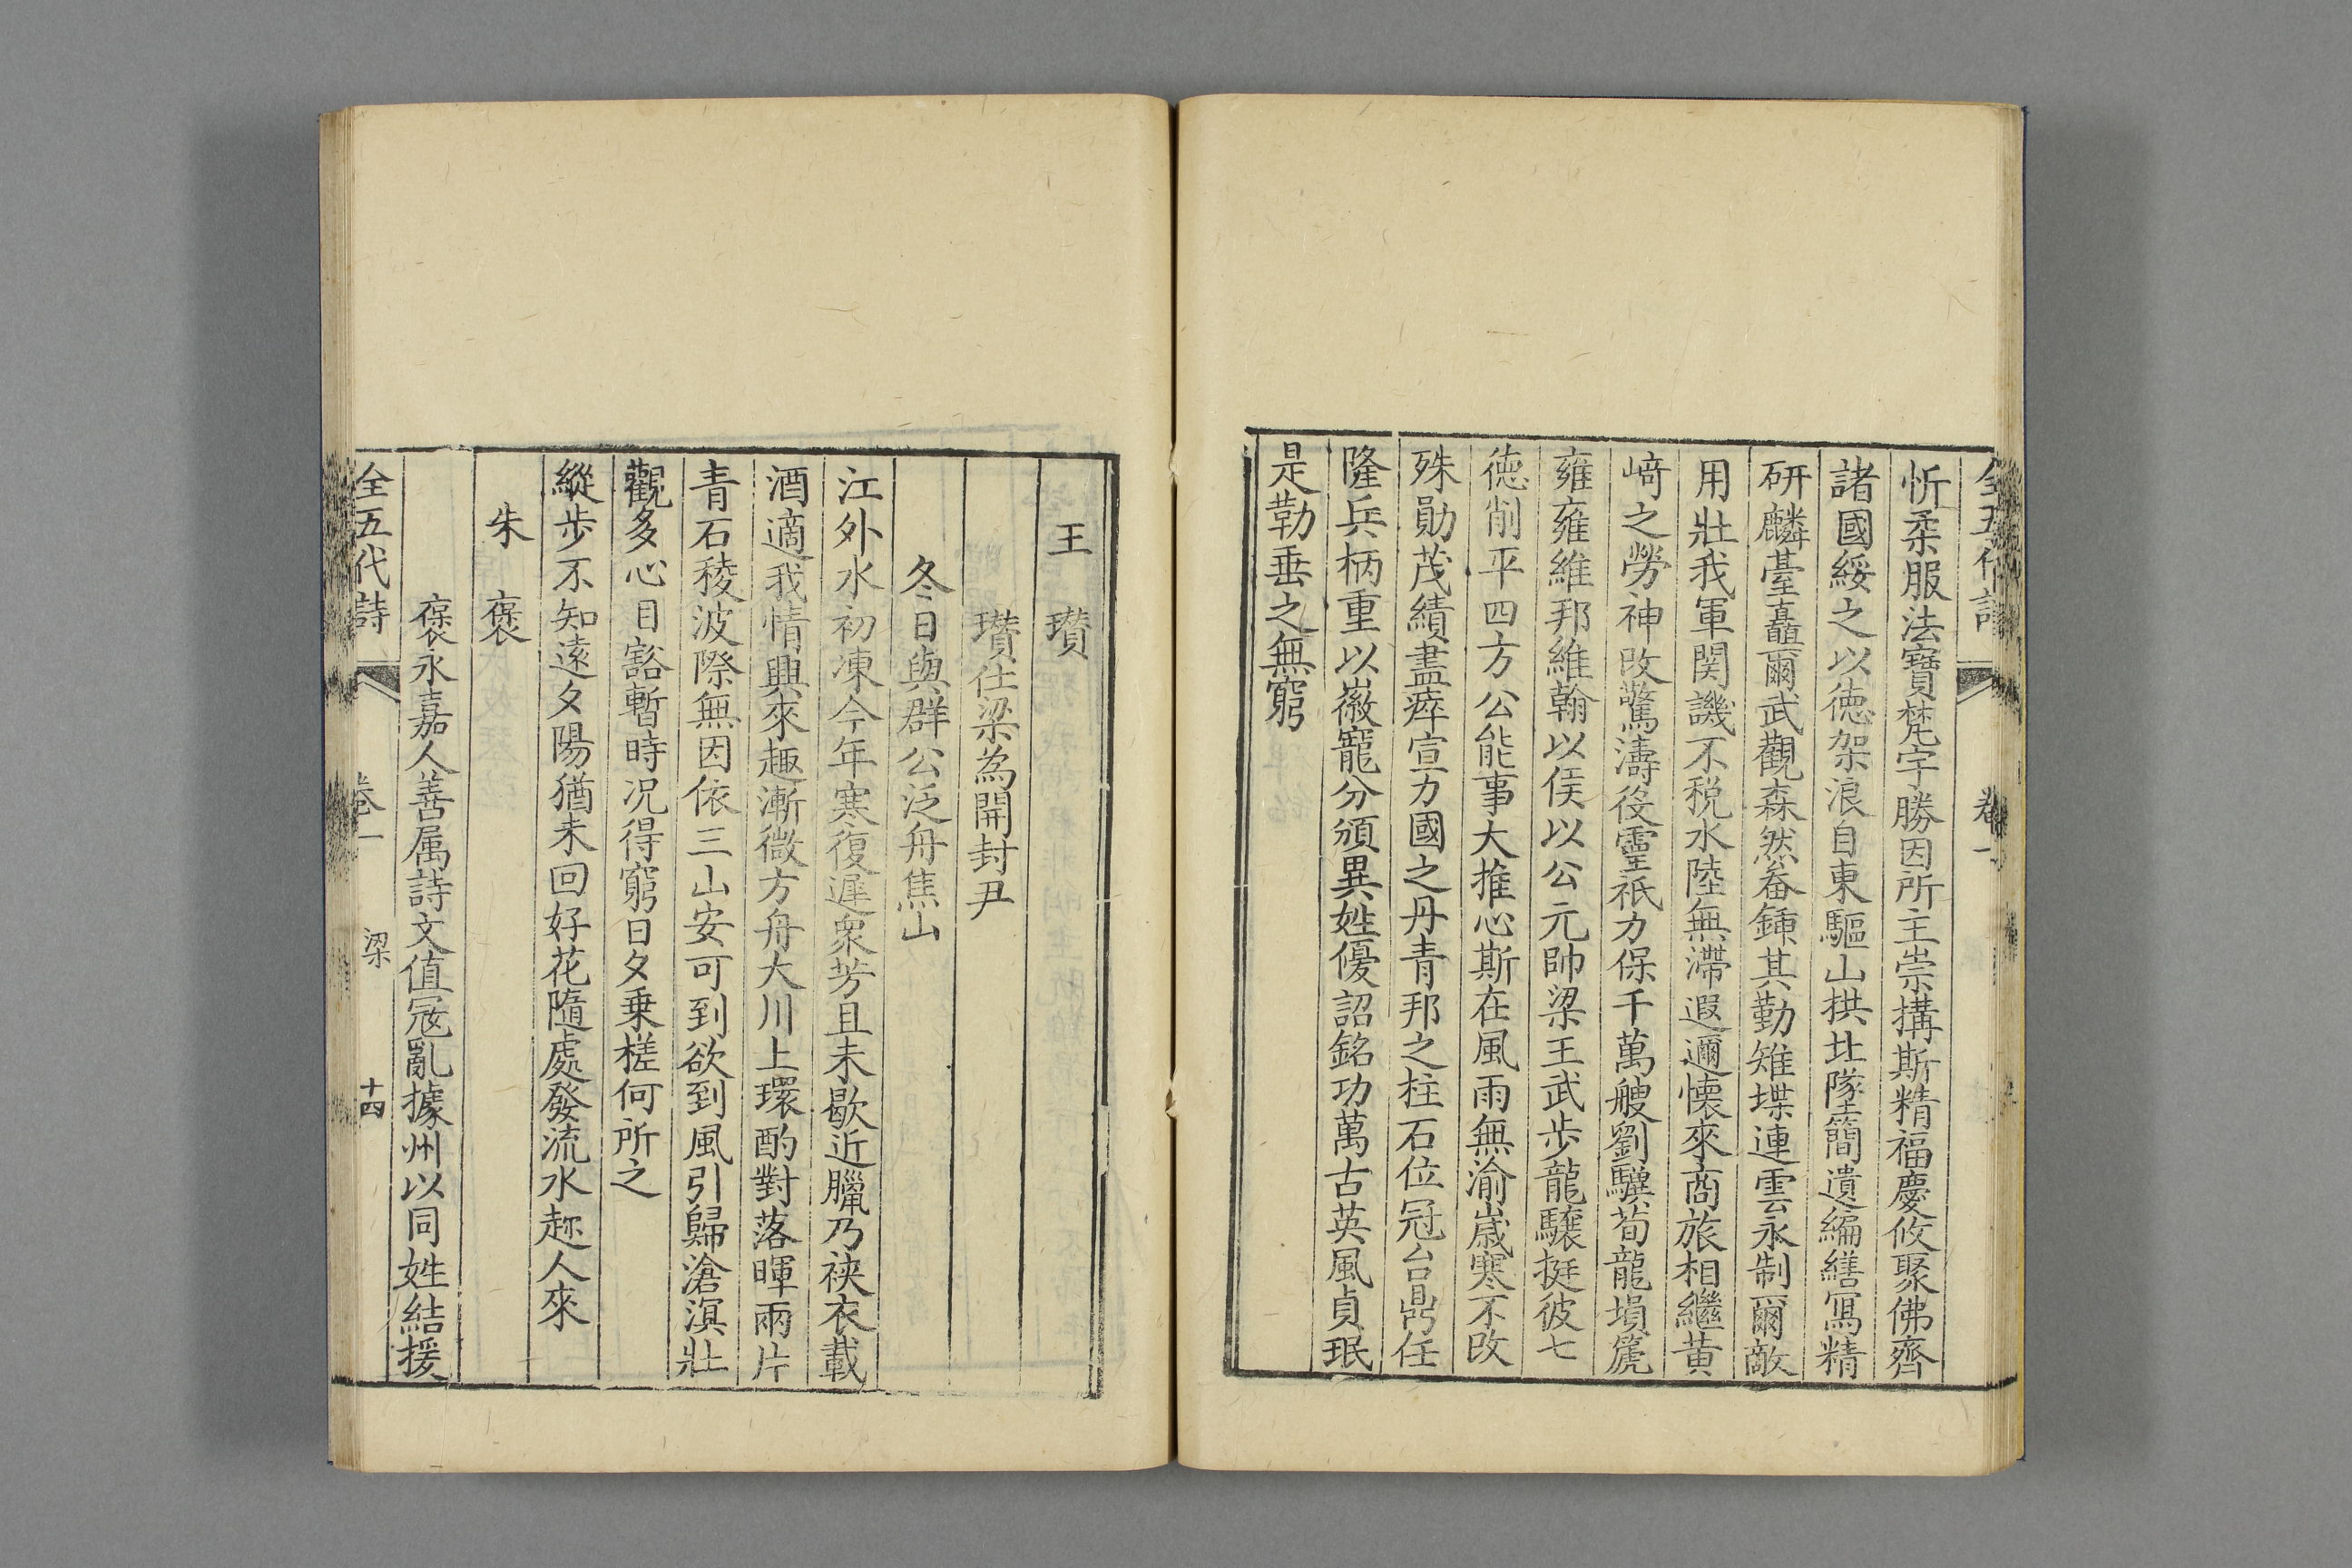 全五代詩 卷一
忻柔服法寶梵字勝因所主崇搆斯精福慶攸聚佛齊
諸國綏之以徳架浪自東驅山拱北隊簡遺編繕寫精
研麟臺矗爾武觀森然畚鍤其勤雉堞連雲永制爾敵
用壯我軍関譏不税水陸無滯遐邇懐來商旅相繼黄
﨑之勞神改驚濤役靈祇力保千萬艘劉驥荀龍塤箎
雍雍維邦維翰以侯以公元帥梁王武步龍驤挺彼七
徳削平四方公能事大推心斯在風雨無渝嵗寒不改
殊勛茂績盡瘁宣力國之丹青邦之柱石位冠台鼎任
隆兵柄重以徽寵分頒異姓優詔銘功萬古英風貞珉
是勒垂之無窮
王 瓉
瓉仕梁為開封尹
冬日與群公泛舟焦山
江外水初凍今年寒復遲衆芳且未歇近臘乃裌衣載
酒適我情興來趣漸微方舟大川上環酌對落暉兩片
青石稜波際無因依三山安可到欲到風引歸滄溟壯
觀多心目豁暫時况得窮日夕乗槎何所之
縱歩不知逺夕陽猶未回好花隨處發流水趂人來
朱 褒
褒永嘉人善属詩文值冦亂據州以同姓結援
全五代詩 卷一 梁 十四